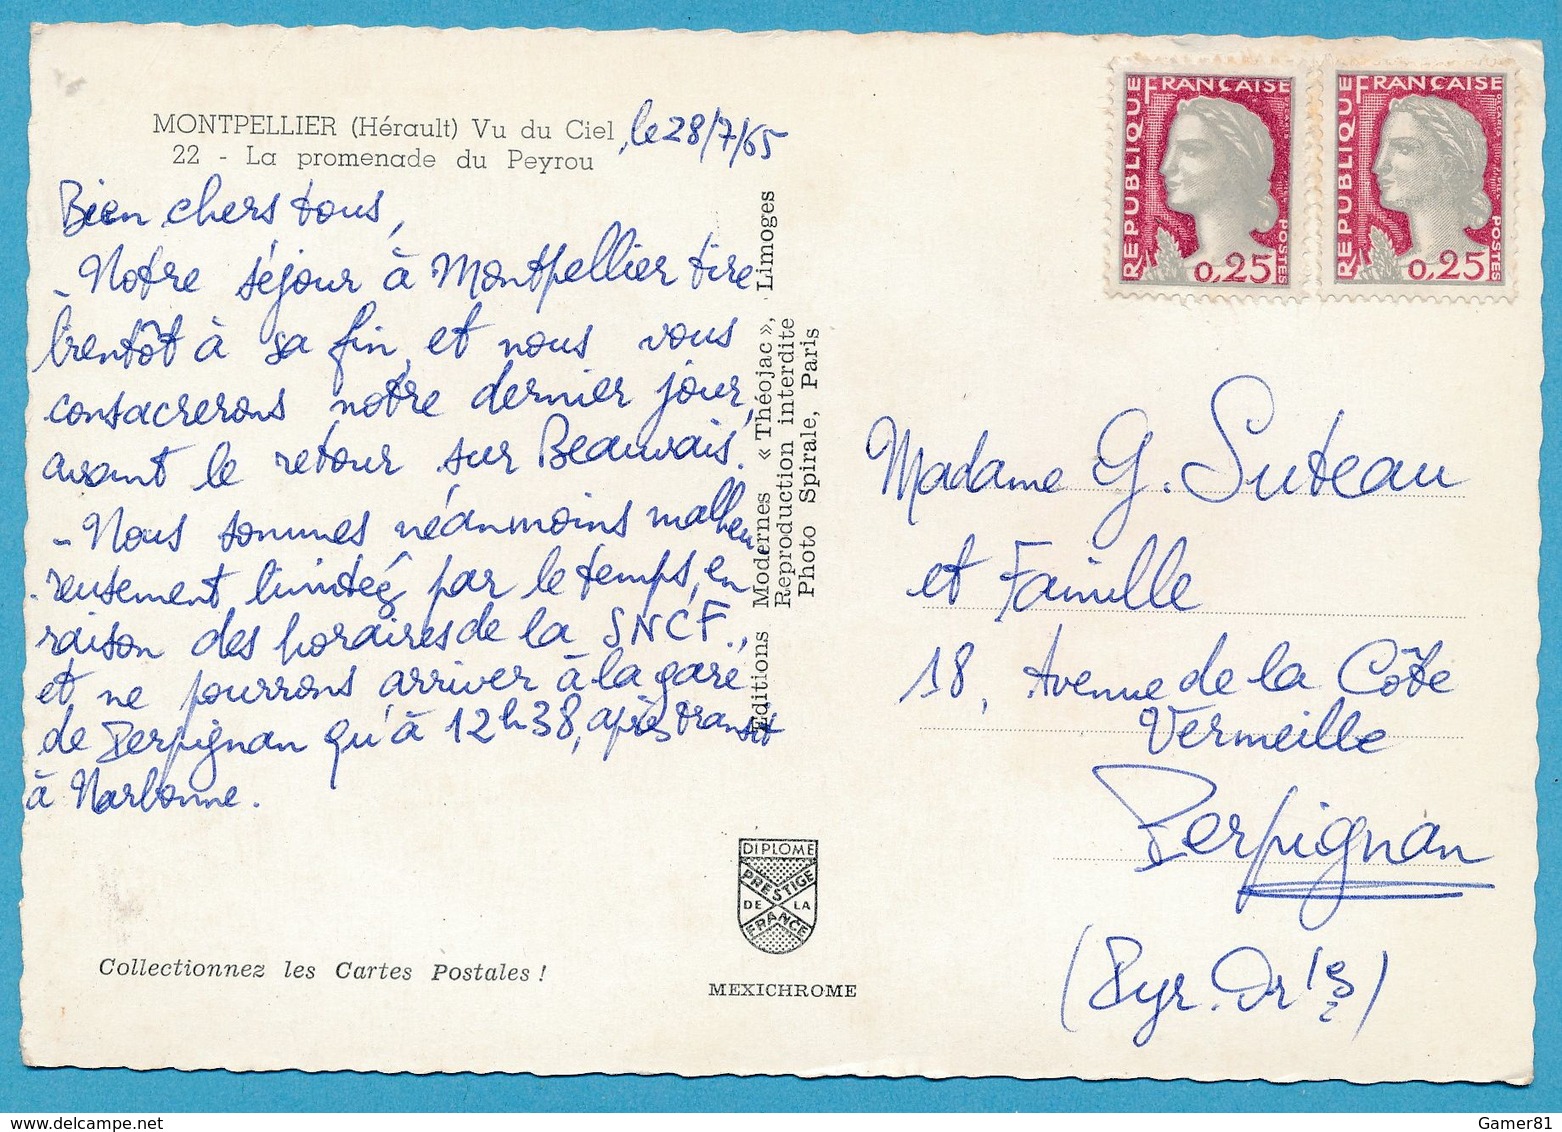 MONTPELLIER (Hérault) Vu du Ciel, le 28/7/65
22 - La promenade du Peyrou
Bien chers tous,
- Notre séjour à Montpellier tire
bientôt à sa fin, et nous vous
consacrerons notre dernier jour,
avant le retour sur Beauvais.
- Nous sommes néanmoins malheu-
reusement limités par le temps, en
raison des horaires de la SNCF.,
et ne pourrons arriver à la gare
de Perpignan qu'à 12h38, après transit
à Narbonne.
Collectionnez les Cartes Postales !
Editions Modernes « Théojac », Limoges
Reproduction interdite
Photo Spirale, Paris
DIPLOME
PRESTIGE
DE LA
FRANCE
MEXICHROME
REPUBLIQUE FRANÇAISE
0,25 POSTES
REPUBLIQUE FRANÇAISE
0,25 POSTES
Madame G. Suteau
et Famille
18, Avenue de la Côte
Vermeille
Perpignan
(Pyr. Or les)
Gamer81